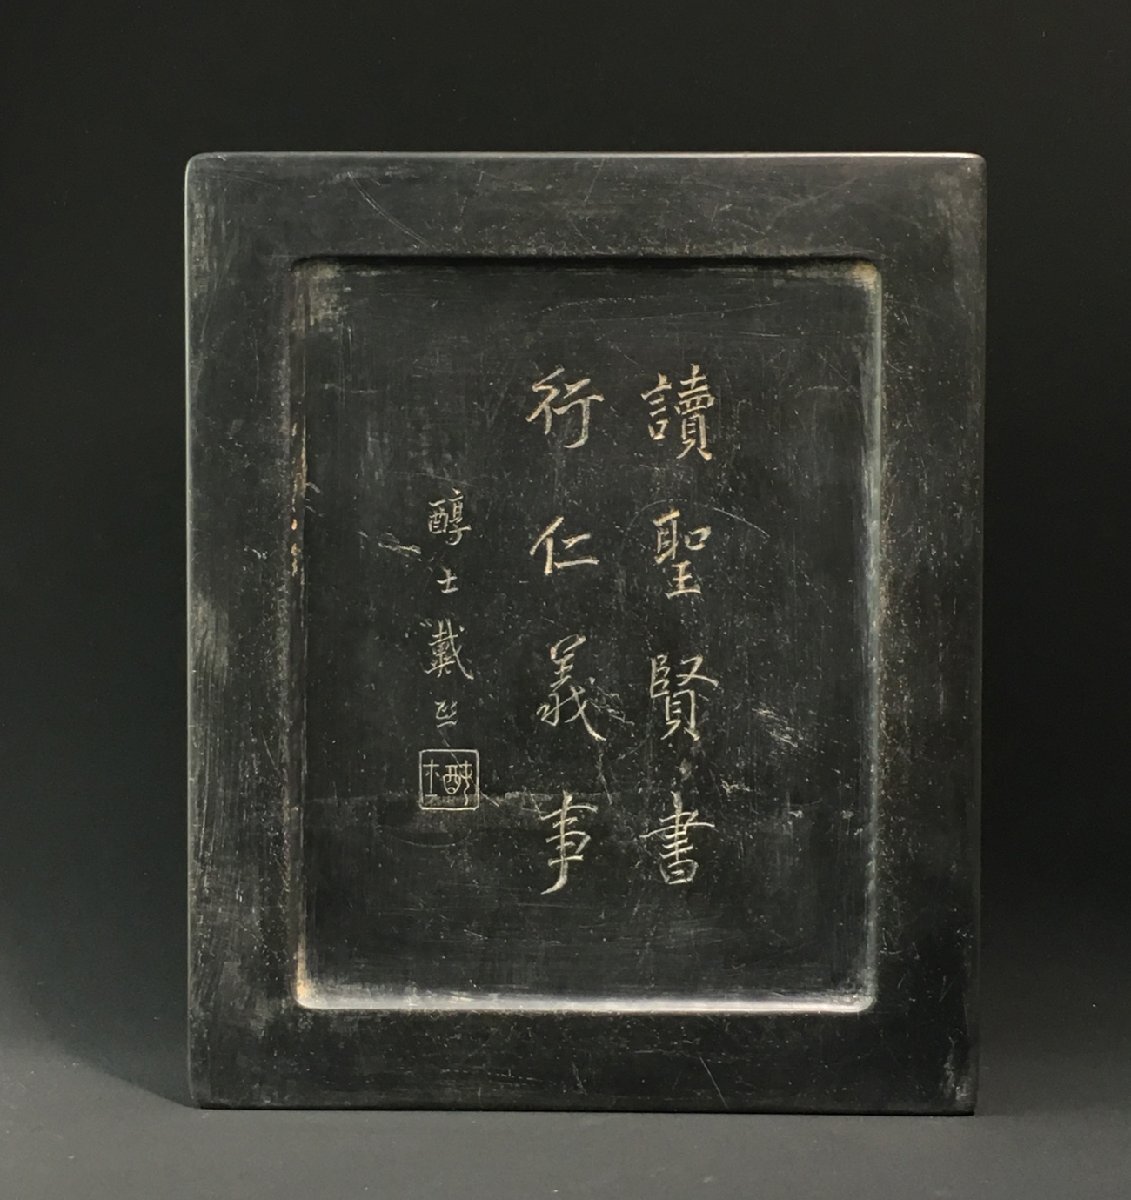 讀聖賢書
行仁義事
醇士戴熙